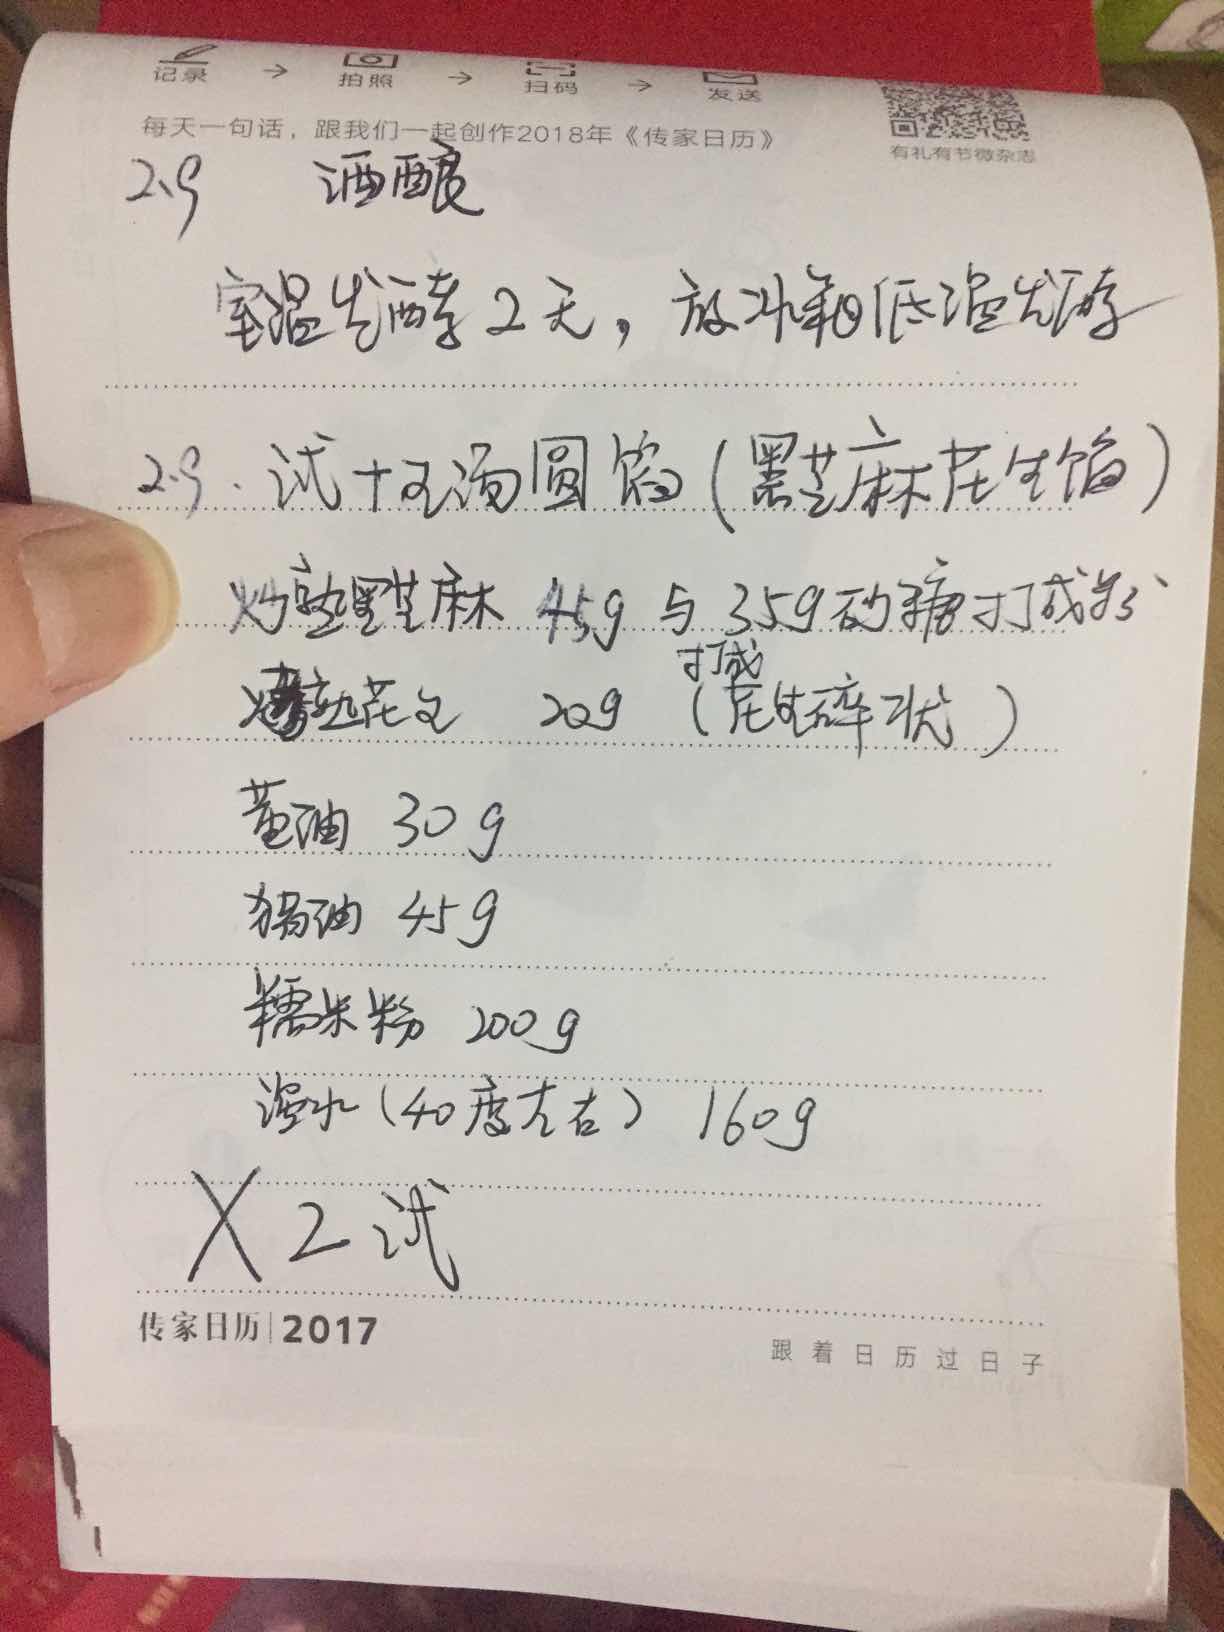 记录 → 拍照 → 扫码 → 发送
每天一句话，跟我们一起创作2018年《传家日历》
有礼有节微杂志
2.9 酒酿
室温发酵2天，放冰箱低温发酵
2.9. 试十五汤圆馅(黑芝麻花生馅)
炒熟黑芝麻 45g 与 35g砂糖打成粉
打成
熟花生 20g (花生碎状)
黄油 30g
猪油 45g
糯米粉 200g
温水(40度左右) 160g
X 2 试
传家日历|2017
跟着日历过日子